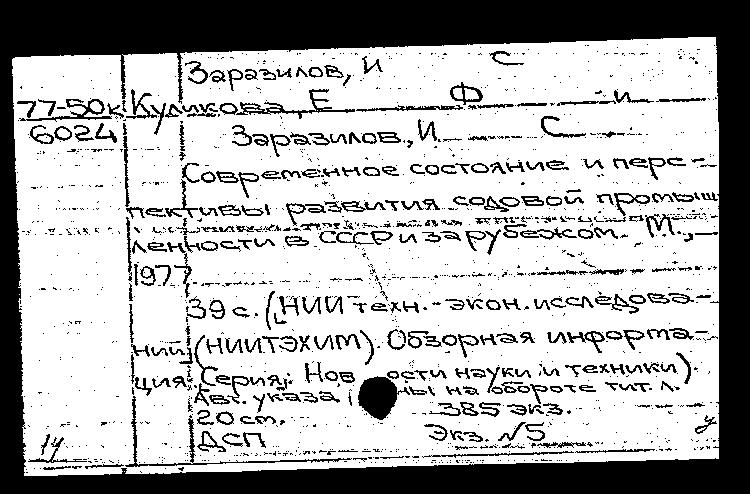 Заразилов, И С
77-50к Куликова, Е Ф и
6024 Заразилов, И С
Современное состояние и перс-
пективы развития содовой промыш
ленности в СССР и за рубежом. М.,
1977
39 с. (НИИ техн.-экон. исследова-
ний (НИИТЭХИМ). Обзорная информа-
ция. Серия: Новости науки и техники).
Авт. указаны на обороте тит. л.
20 см. 385 экз.
14 ДСП Экз. №5 у